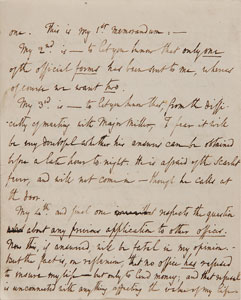 one. This is my 1st memorandum. —
My 2nd is — to let you know that only one
of the official forms has been sent to me, whereas
of course we want two.
My 3rd is — to let you know that, from the diffi-
culty of meeting with Major Miller, I fear it will
be very doubtful whether his answer can be obtained
before a late hour to night. He is afraid of the Scarlet
fever, and will not come in — though he calls at
the door.
My 4th and final one respects the question
about any previous application to other offices.
Now this, if answered, will be fatal in my opinion.
But the fact is, on reflexion, that no office has refused
to insure my life — but only to lend money; and that refusal
is unconnected with any thing affecting the value of my life